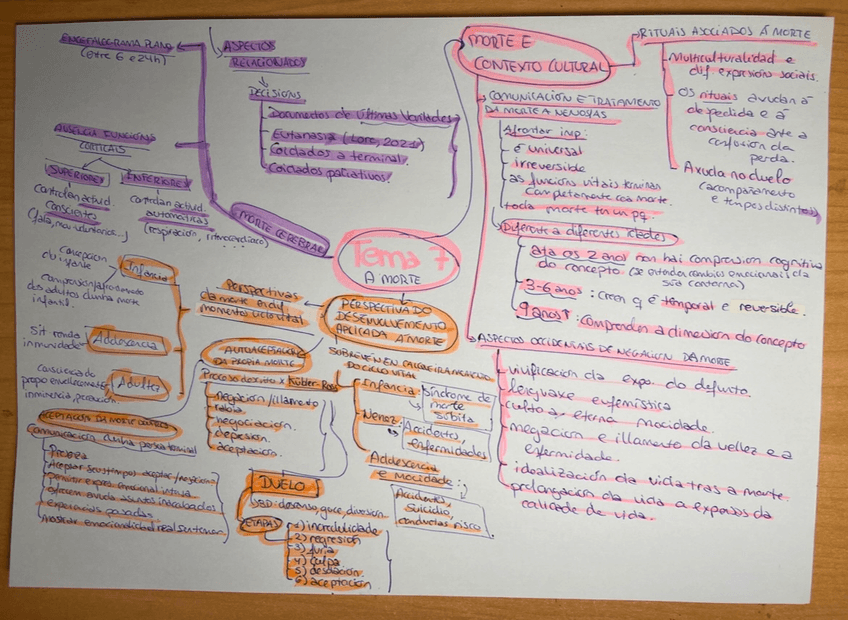 Tema 7
A MORTE
MORTE E
CONTEXTO CULTURAL
RITUAIS ASOCIADOS Á MORTE
Multiculturalidad e
dif. expresións sociais.
Os rituais axudan á
despedida e á
consciencia ante a
confusión da
perda.
Axuda no duelo
(acompañamento
e tempos distintos)
COMUNICACIÓN E TRATAMENTO
DA MORTE A NENOS/AS
Afrontar imp:
é universal
irreversible
as funcións vitais terminan
completamente coa morte.
toda morte ten un pq.
Diferente a diferentes idades
Ata os 2 anos non hai comprensión cognitiva
do concepto (se entenden cambios emocionais da
súa contorna)
3-6 anos: creen q é temporal e reversible.
9 anos↑: comprenden a dimensión do concepto
ASPECTOS OCCIDENTAIS DE NEGACIÓN DA MORTE
vivificación da expo. do defunto.
linguaxe eufemística
culto á eterna mocidade.
negación e illamento da vellez e a
enfermidade.
idealización da vida tras a morte.
prolongación da vida a expensas da
calidade de vida.
MORTE CEREBRAL
ASPECTOS
RELACIONADOS
DECISIÓNS
Documentos de Últimas Vontades
Eutanasia (Lore, 2021)
Coidados a terminal.
Coidados paliativos.
ENCEFALOGRAMA PLANO
(entre 6 e 24h)
AUSENCIA FUNCIÓNS
CORTICAIS
SUPERIORES
Controlan activid.
conscientes
(fala, mov. voluntarios...)
INFERIORES
Controlan activid.
automáticas
(respiración, ritmo cardíaco)
PERSPECTIVA DO
DESENVOLVEMENTO
APLICADA Á MORTE
PERSPECTIVAS
da morte en dif.
momentos ciclo vital
Infancia
Concepción
do infante
comprensión
dos adultos dunha morte
infantil.
Adolescencia
Sit. ronda
inmunidade
Adultez
Consciencia do
propio envellecemento
AUTOACEPTACIÓN
DA PROPIA MORTE
Proceso descrito x Kübler-Ross
negación/illamento
rabia.
negociación.
depresión.
aceptación.
ACEPTACIÓN DA MORTE DOUTROS
Comunicación dunha persoa terminal
Aceptar seus tempos aceptar/negación
Permitir expres. emocional intensa
Ofrecen axuda asuntos inacabados
Experiencias pasadas
Mostrar emocionalidad real sen temer
SOBREVÉN EN CALQUERA MOMENTO
DO CICLO VITAL
Infancia:
Síndrome de
morte
súbita
Nenez:
Accidentes,
enfermidades
Adolescencia
e mocidade:
Accidentes,
suicidio,
conductas risco
DUELO
descanso, goce, diversión
ETAPAS
1) incredulidade
2) regresión
3) furia
4) culpa
5) desolación
6) aceptación